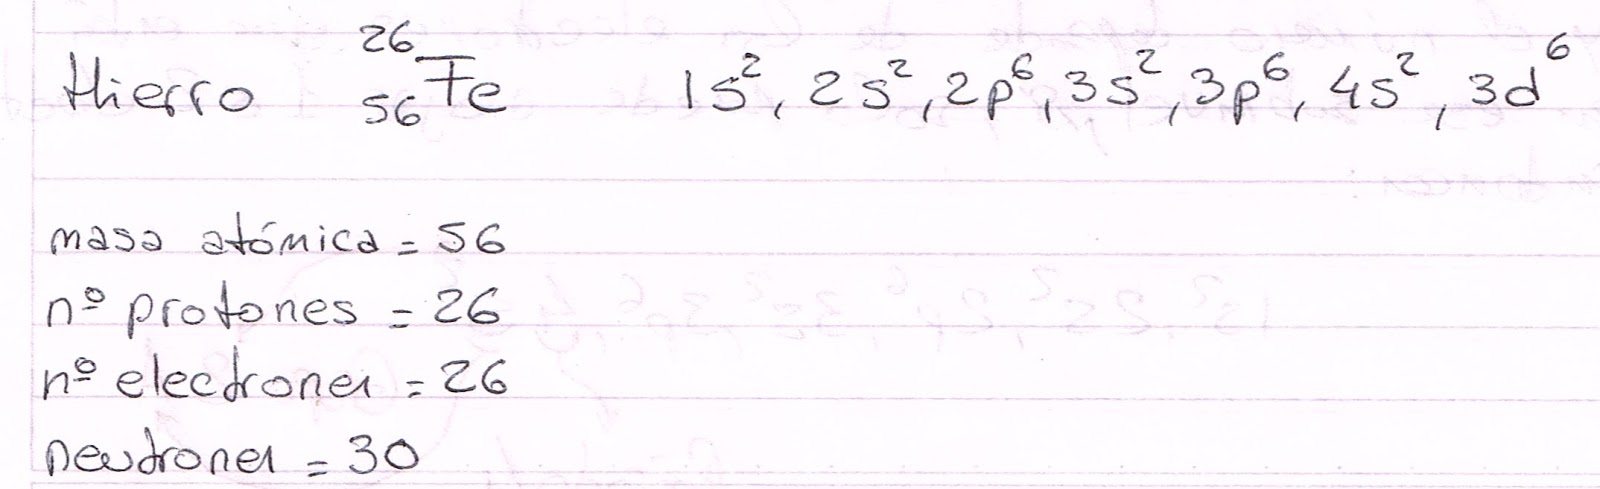 Hierro ²⁶₅₆Fe 1s², 2s², 2p⁶, 3s², 3p⁶, 4s², 3d⁶
masa atómica = 56
nº protones = 26
nº electrones = 26
neutrones = 30